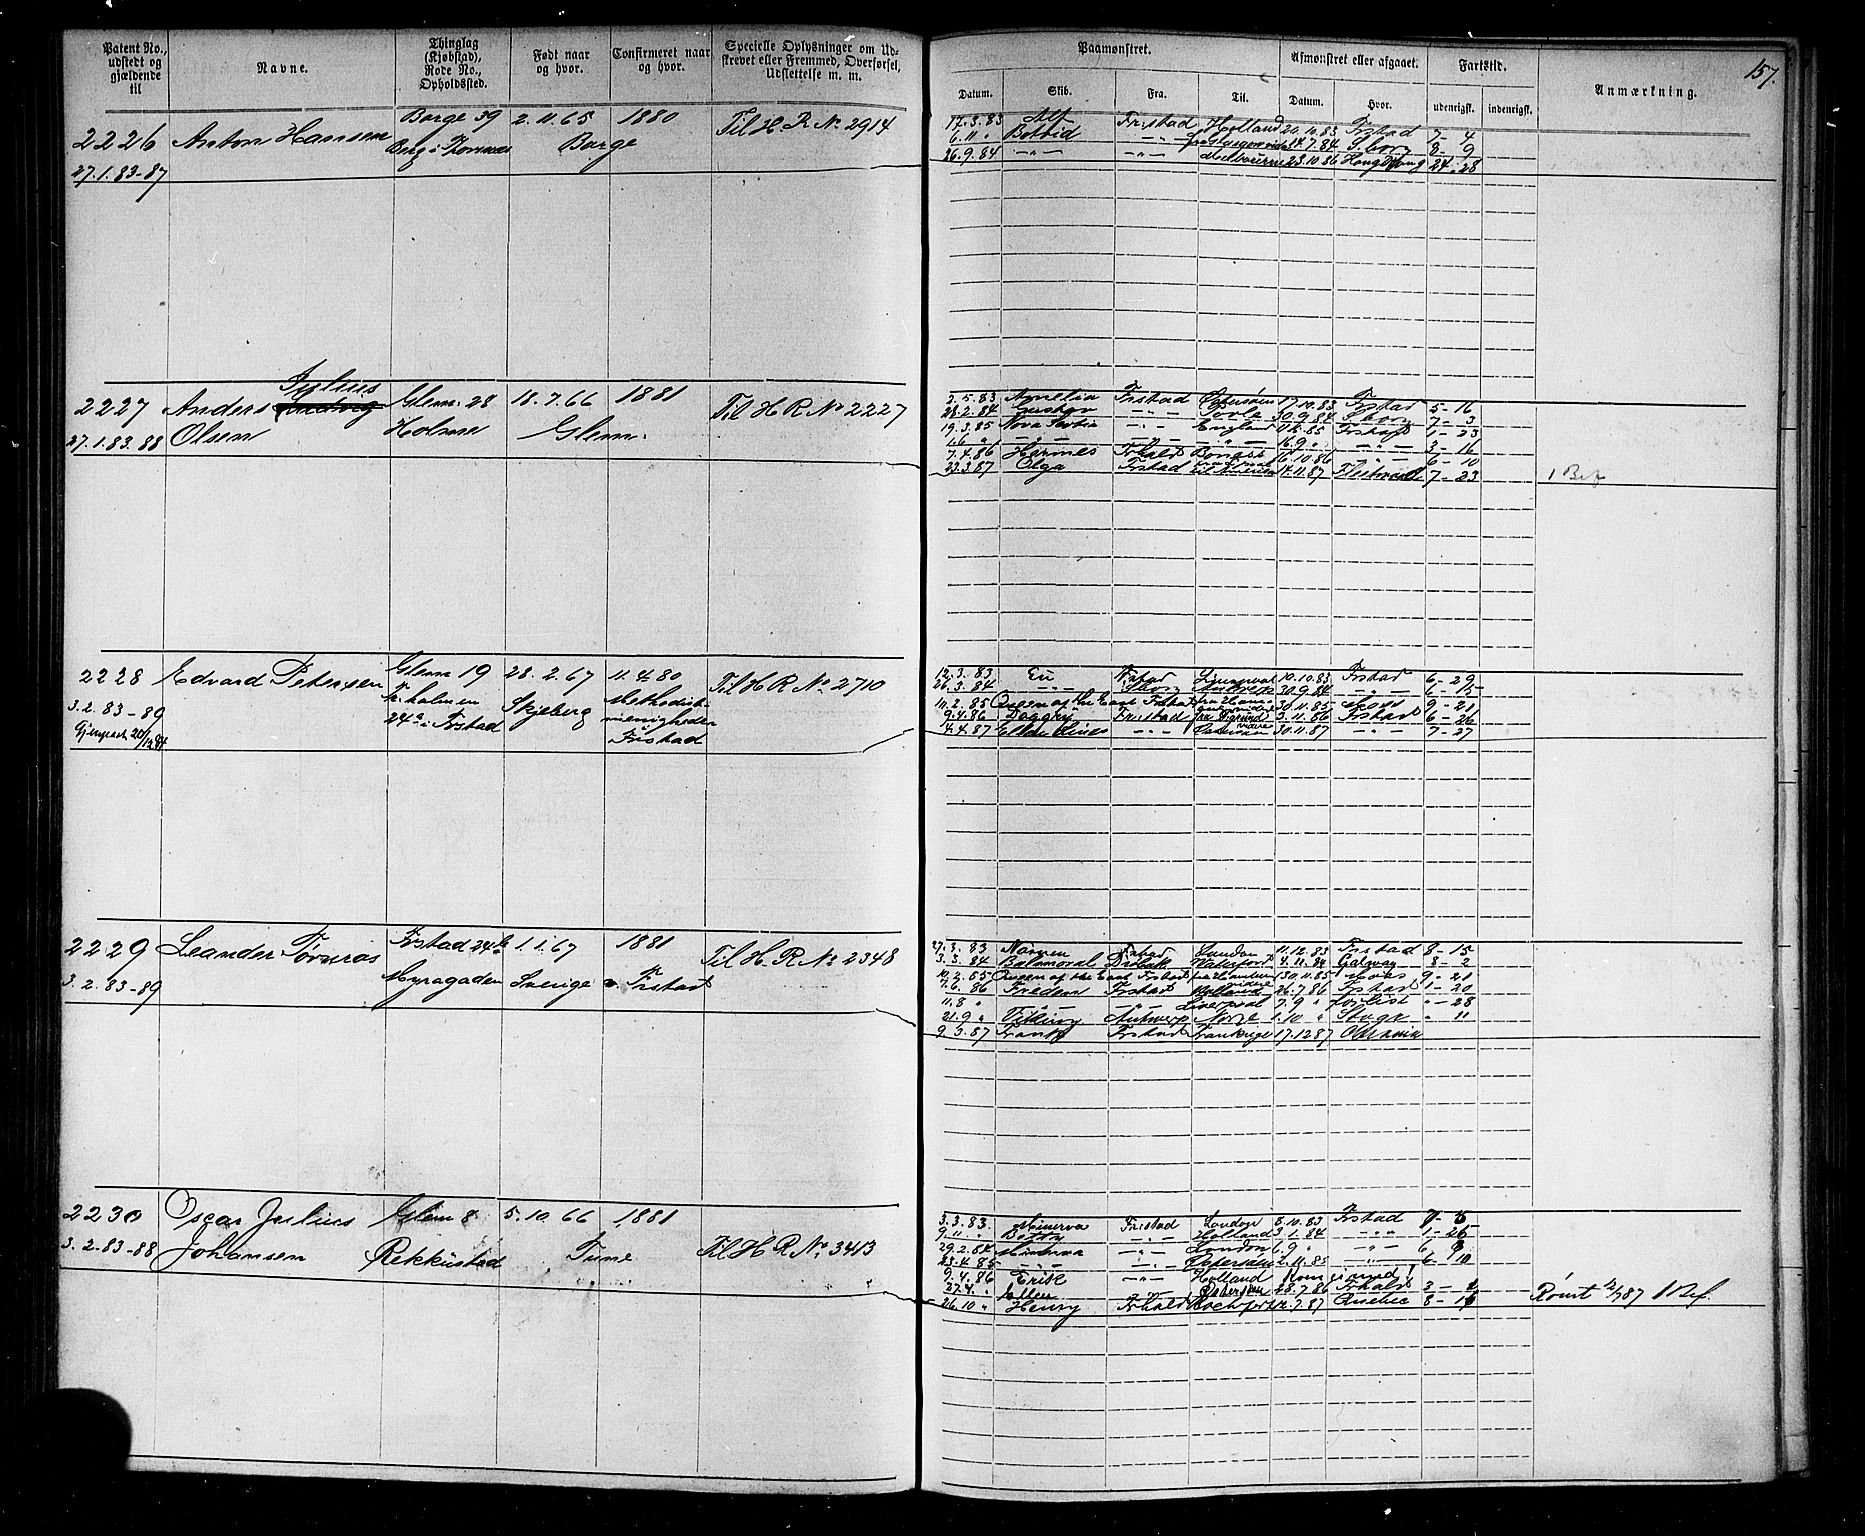 Patent No., udstedt og gjældende til
Navne.
Thinglag (Kjøbstad), Rode No., Opholdssted.
Født naar og hvor.
Confirmeret naar og hvor.
Specielle Oplysninger om Udskrevet eller Fremmed, Overførsel, Udslettelse m. m.
Paamønstret.
Afmønstret eller afgaaet.
Fartstid.
Anmærkning.
157.
Datum. Skib. Fra. Til. Datum. Hvor. udenrigsk. indenrigsk.
2226 Anton Hansen Borge 39 2.11.65 1880 Til H R No 2914
27.1.83-87 Berg i Borge
17.3.83 Alf Fr.stad Holland 20.10.83 Frstad 7-4
6.11 " Botvid -"- 7.84 S.borg 8-9
26.9.84 -"- -"- Melbourne 23.10.86 Hongkong 24-28
2227 Anders Julius Glem. 28 18.7.66 1881 Til H R No 2227
27.1.83-88 Olsen Holme Glem.
3.5.83 Amelia Frstad Østersøen 17.10.83 Frstad 5-16
28.2.84 Gustav -"- 30.9.84 S borg 7-3
19.3.85 Nova Scotia -"- England Frstad 1-23
1.6 " -"- -"- -"- 16.9 " -"- 3-16
7.4.86 Frhald 16.10.86 -"- 6-10
23.3.87 Olga Frstad 14.11.87 7-23 1 Bef
2228 Edvard Petersen Glem 19 28.2.67 11.4.80 Til H R No 2710
3.2.83-89 Fr. holmen Skjeberg Methodist-
24a i Frstad menigheden
Frstad
12.3.83 Eu Frstad Liverpool 10.10.83 Frstad 6-29
26.3.84 -"- Sborg Antwerp 30.9.84 -"- 6-15
10.2.85 Queen of the East Frstad 30.11.85 9-21
9.4.86 Doggry Fr.stad 3.11.86 Frstad 6-26
4.4.87 -"- Østersøen 30.11.87 -"- 7-27
2229 Leander Törnros Frstad 24b 1.1.67 1881 Til H. R No 2348
3.2.83-89 Myragaden Sverige Frstad
27.3.83 Frstad London 11.12.83 Frstad 8-15
3.3.84 Balmoral Drøbak Waterford 4.11.84 Galway 8-2
10.2.85 Queen of the East Frstad 30.11.85 9-21
7.6.86 Fredem Frstad Holland 26.7.86 Frstad 1-20
11.8 " -"- Liverpool 7.9 " forlist "-28
21.9 " Viking Antwerp Norge 1.10 " " 11
9.3.87 Frantz Frstad Frankrige 17.12.87
2230 Oscar Julius Glem 8 5.10.66 1881
3.2.83-88 Johansen Rekkustad Tune Til H R No. 3413
3.3.83 Minerva Fr.stad London 8.10.83 Frstad 7-5
9.11. " Betty -"- Holland 3.1.84 -"- 1-26
29.2.84 Minerva -"- London 6.9 " -"- 6
23.4.85 -"- -"- Østersøen 2.11.85 -"- 6-10
9.4.86 Erik -"- Holland
27.4. " Ellen -"- Østersøen 28.7.86 Frhald
26.10 " Henry Frhald 7.87 Quebec 8-16 Rømt 2/7 87 1 Bef.